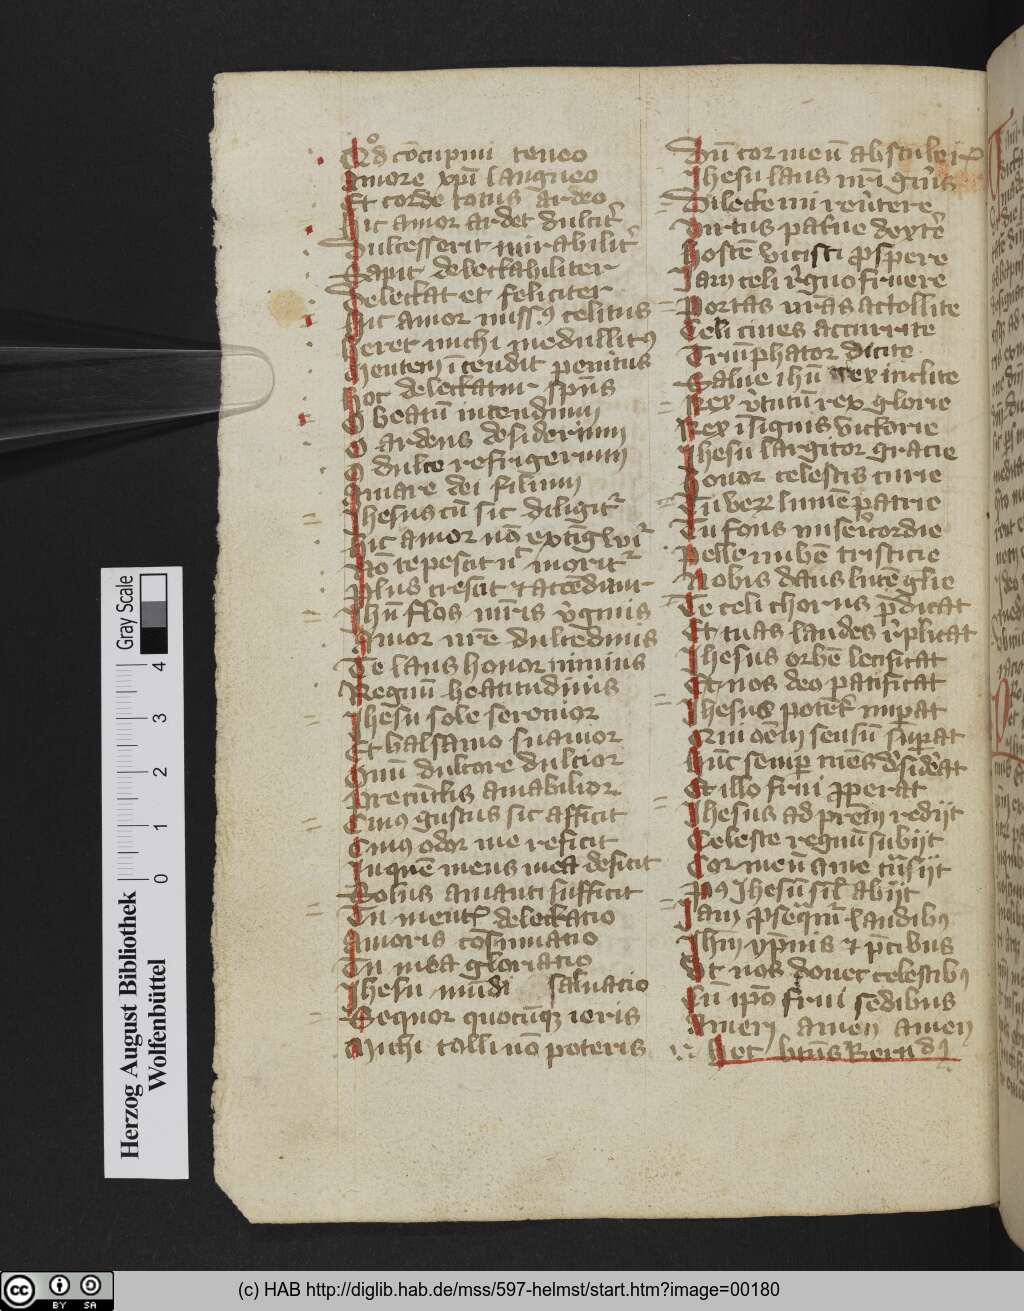 Qd̄ cōcupiui teneo
Amore xp̄i langueo
Et corde totus ardeo
Hic amor ardet dulcit͛
Dulcesscerit mirabilit͛
Sapit delectabiliter
Delectat et feliciter
Hic amor missꝰ celitus
Heret michi medullitꝰ
Mentem īcendit penitus
Hoc delectatur sp̄us
O beatū incendium
O ardens desiderium
O dulce refrigerium
Amare dei filium
Jhesus cū sic diligit͛
Hic amor nō extīgwit͛
Nō tepescit nͨ morit͛
Plus crescit ⁊ accēditur
Jhū flos mr̄is v͛ginis
Amor nr̄e dulcedinis
Te laus honor nimius
Regnū beatitudinis
Jhesu sole serenior
Et balsamo suauior
Omī dulcore dulcior
Pre cūctis amabilior
Cuiꝰ gustus sic afficit
Cuiꝰ odor me reficit
In quē mens mea deficit
Solus amanti sufficit
Tu ment͛ delectacio
Amoris cōsummacio
Tu mea gloriacio
Jhesu mūdi saluacio
Sequor quocūqꝫ ieris
Michi tolli nō poteris
Dū cor meū abstuleris
Jhesu laus nr̄i gn̄is
Dilecte mi reu͛tere
Virtus pat͛ne dext͛e
Hostē vicisti ꝓspere
Jam celi r͛gno fruere
Portas vr̄as actollite
Celi ciues accurrite
Triūphatori dicite
Salue ihū rex inclite
Rex v͛tutū rex glorie
Rex īsignis victorie
Jhesu largitor gracie
Honor celestis curie
Tu ver̄ lumē patrie
Tu fons miser͛cordie
Pelle nubē tristicie
Nobis dans lucē gl̄ie
Te celi chorus p̄dicat
Et tuas laudes r͛plicat
Jhesus orbē letificat
Et nos deo pacificat
Jhesus
Qui ōēm sensū suꝑat
Hūc semꝑ mēs desid͛at
Et illo frui ꝓperat
Jhesus ad pr̄em redijt
Celeste regnū subijt
Cor meū a me trāsijt
Pꝰ Jhesū sil̄ abijt
Jam ꝓseq̄mur laudibꝰ
Jhm̄ ypm̄is ⁊ p͛cibus
Vt nos donet celestibꝰ
Cū ip̄o frui sedibus
Amen amen amen
Hec btūs Bernhdꝰ
Herzog August Bibliothek
Wolfenbüttel
Gray Scale
0 1 2 3 4
(c) HAB http://diglib.hab.de/mss/597-helmst/start.htm?image=00180
cc BY SA